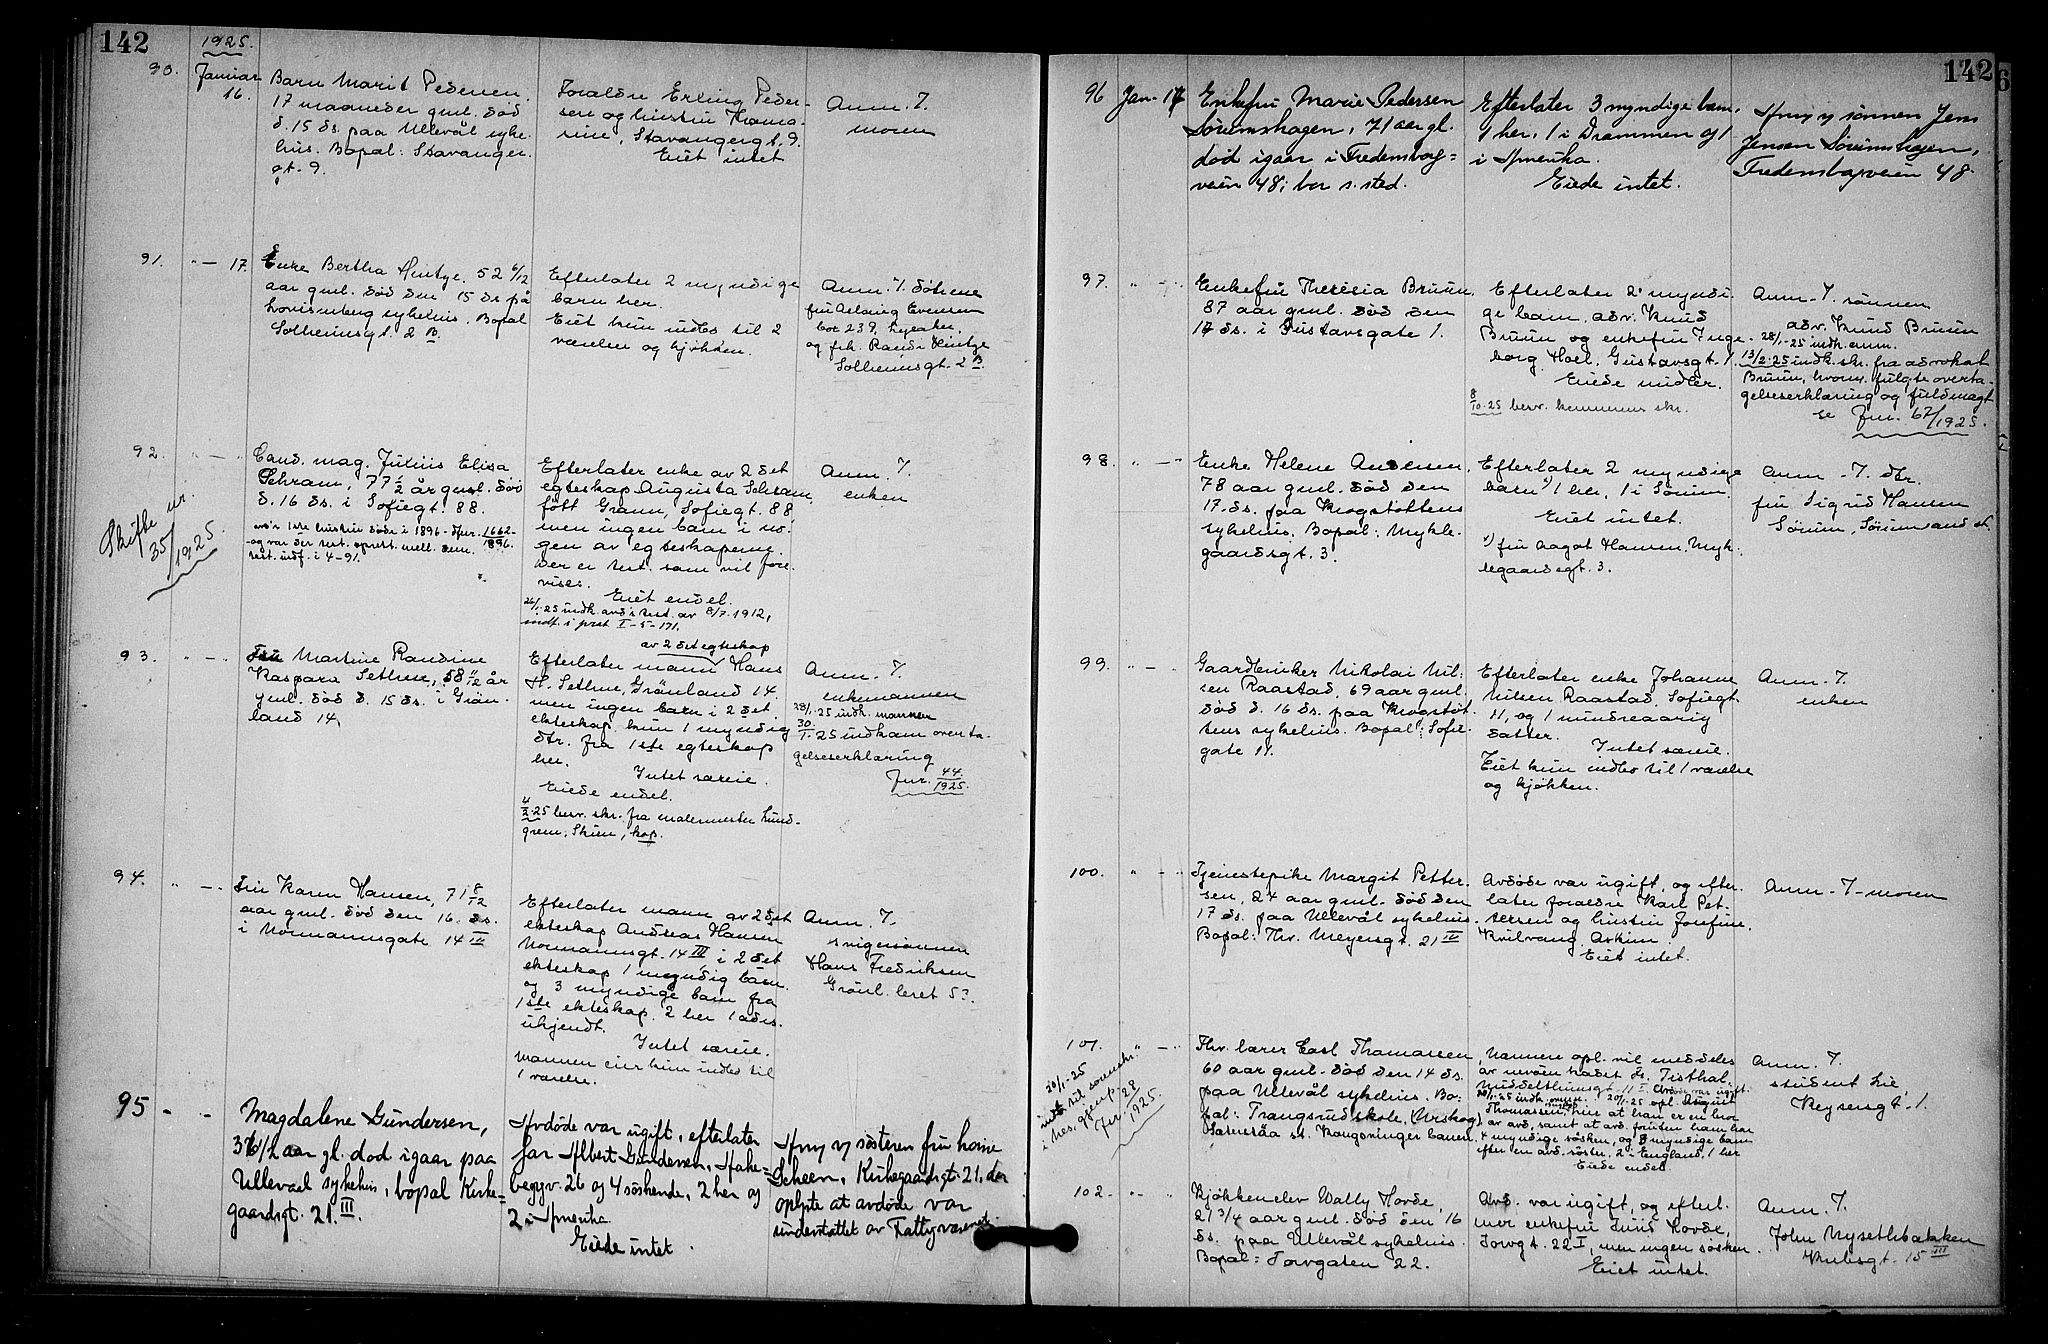 142
1925.
90.
Januar
16.
Barn Marit Pedersen,
17 maaneder gml. død
d. 15 ds. paa Ullevål syke-
hus. Bopæl: Stavanger-
gt. 9.
Foreldre Erling Peder-
sen og hustru Thoma-
sine, Stavangergt. 9.
Eiet intet
Anm. T.
moren
91. " — 17.
Enke Bertha Hintze. 52 6/12
aar gml. død den 15 ds på
Lovisenberg sykehus. Bopæl
Solheimsgt. 2 B.
Efterlater 2 myndige
barn her.
Eiet kun indbo til 2
værelser og kjøkken.
Anm. T. døtrene
fru Aslaug Evensen
box 239, Lysaker,
og frk. Randi Hintze
Solheimsgt. 2 B.
92. " — "
Skifte nr.
35/1925.
Cand. mag. Julius Elisa
Schram, 77 1/2 år gml. død
d. 16 ds. i Sofiegt. 88.
avd's 1ste hustru døde i 1896 - Jnr. 1662/1896.
- og var der test. oprett. mell. dem.
test. indf. i 4-91.
Efterlater enke av 2det
egteskap Augusta Schram
født Grann, Sofiegt. 88,
men ingen barn i no-
gen av egteskapene.
Der er test. som vil fore-
vises.
Eiet endel.
26/1-25 indk. avd's test. av 8/7.1912,
indf. i prot I-5-171.
Anm. T.
enken
93. " — "
Fru Martine Randine
Kaspara Sethne, 58 11/12 år
gml. død d. 15 ds. i Grøn-
land 14,
av 2det egteskap
Efterlater mann Hans
H. Sethne, Grønland 14.
men ingen barn i 2det
ekteskap, kun 1 myndig
dtr. fra 1ste egteskap
her.
Intet særeie.
Eiede endel.
4/2-25 besv. skr. fra malermester Lund-
green, Skien, kop.
Anm. T.
enkemannen
28/1-25 indk. mannen
30/1-25 indkom overta-
gelseserklæring
Jnr. 44/1925.
94. " — "
Fru Karen Hansen, 71 8/12
aar gml. død den 16. ds.
i Normannsgate 14 III
Efterlater mann av 2det
ekteskap Andreas Hansen
Normannsgt. 14 III i 2det
ekteskap 1 myndig barn
og 3 myndige barn fra
1ste ekteskap, 2 her 1 adrs.
ukjendt.
Intet særeie.
Mannen eier kun indbo til
1 værelse.
Anm. T.
svigersønnen
Hans Fredriksen
Grønl. leret 53.
95 - -
Magdalene Gundersen,
36 1/2 aar gl. død igaar paa
Ullevaal sykehus, bopæl Kirke-
gaardsgt. 21. III.
Avdøde var ugift, efterlater
far Albert Gundersen, Hake-
begygv. 26 og 4 søskende, 2 her og
2 i Amerika
Eiede intet.
Anm. v/ søsteren fru
Scheen, Kirkegaardsgt. 21, der
oplyste at avdøde var
understøttet av Fattigvæsenet.
142
96 Jan. 17
Enkefru Marie Pedersen
Sørumshagen, 71 aar gl.
død igaar i Fredensborg-
veien 48; bor s. sted.
Efterlater 3 myndige barn,
1 her, 1 i Drammen og 1
i Amerika.
Eiede intet.
Anm. v/ sønnen Jens
Jensen Sørumshagen,
Fredensborgveien 48
97. " — "
Enkefru Theresia Bruun,
87 aar gml. død den
17 ds. i Gustavsgate 1.
Efterlater 2 myndi-
ge barn, adv. Knud
Bruun og enkefru Inge-
borg Hoel, Gustavsgt. 1.
Eiede midler.
8/10-25 besv. kemnerens skr.
Anm. T. sønnen
adv. Knud Bruun
28/1-25 indk. anm.
13/2-25 indk. skr. fra advokat
Bruun, hvorm. fulgte overta-
gelseserklæring og fuldmagt
se Jnr. 67/1925.
98. " — "
Enke Helene Andersen,
78 aar gml. død den
17. ds. paa Krogstøttens
sykehus, Bopæl: Mykle-
gaardsgt. 3.
Efterlater 2 myndige
barn x) 1 her, 1 i Sørum.
Eiet intet.
x) fru Aagot Hansen, Myk-
legaardsgt. 3.
Anm. T. dtr.
fru Sigrid Hansen
Sørum, Sørumsand st.
99. " — "
Gaardbruker Nikolai Nil-
sen Raastad, 69 aar gml.
død d. 16 ds. paa Krogstøt-
tens sykehus. Bopæl: Sofie-
gate 11.
Efterlater enke Johanne
Nilsen Raastad, Sofiegt.
11, og 1 mindreaarig
datter.
Intet særeie.
Eiet kun indbo til 1 værelse
og kjøkken.
Anm. T.
enken
100. " — "
Tjenestepike Margit Petter-
sen, 24 aar gml. død den
17 ds. paa Ullevål sykehus.
Bopæl: Thv. Meyersgt. 21 IV
Avdøde var ugift, og efter-
later foreldre Karl Pet-
tersen og hustru Josefine,
Kvilvang, Askim.
Eiet intet.
Anm. T. moren
101. " — "
30/1-25
Jnr. 28/1925.
Fhv. lærer Carl Thomassen,
60 aar gml. død den 14 ds.
paa Ullevål sykehus. Bo-
pæl: Trangsrud skole, (Urskog)
st. Kongsvingerbanen,
Nærmere opl. vil meddeles
av nevøen
20/1-25 opl. August
Thomassen, at han er en bror
av avd, samt at avd. foruten ham har
4 myndige søsken, og 3 myndige barn
efter en avd. søster, 2 i England, 1 her
Eiede endel.
Anm. T.
student Lie
Keysersgt. 1.
102. " — "
Kjøkkenelev Wally Hovde,
21 3/4 aar gml. død den 16
ds. paa Ullevål sykehus.
Bopæl: Torvgaten 22.
Avd. var ugift, og efterl.
mor enkefru Hovde,
Torvgt. 22 I, men ingen søsken.
Eiet intet.
Anm. T.
John Nysethbakken
Kubesgt. 15 III